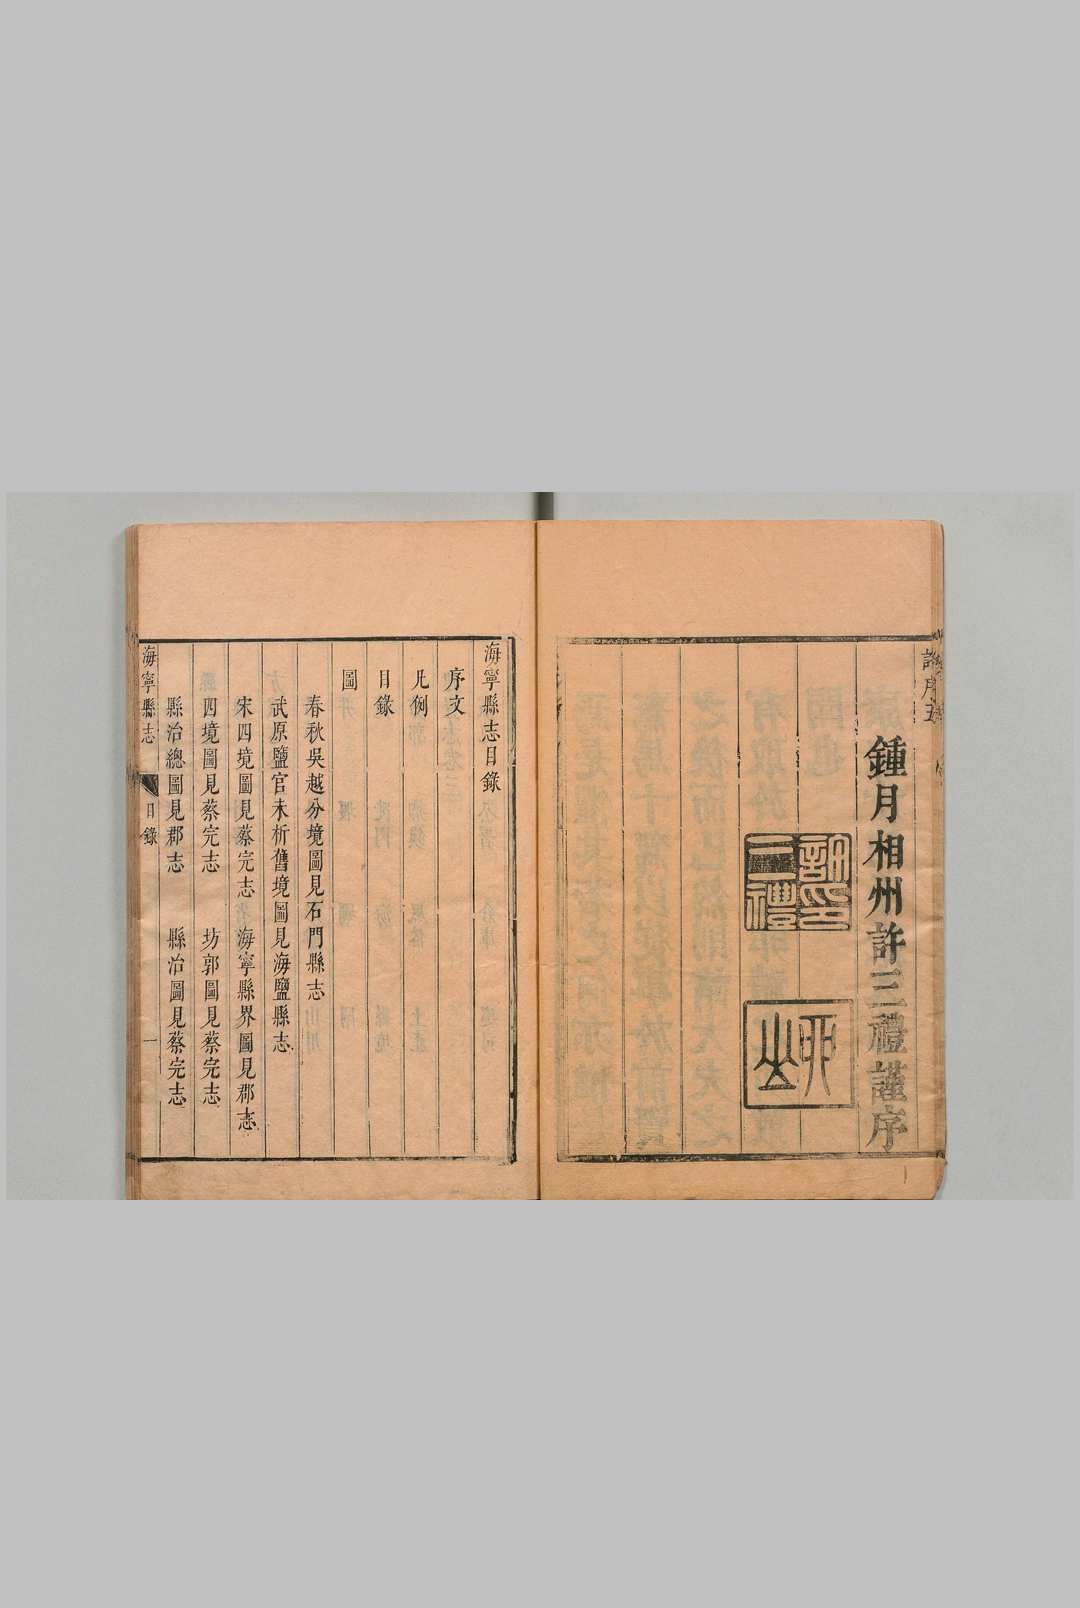 鍾月相州許三禮謹序
海寧縣志目錄
序文
凡例
目錄
圖
春秋吳越分境圖見石門縣志
武原鹽官未析舊境圖見海鹽縣志
宋四境圖見蔡完志 海寧縣界圖見郡志
四境圖見蔡完志 坊郭圖見蔡完志
縣治總圖見郡志 縣治圖見蔡完志
海寧縣志 目錄 一